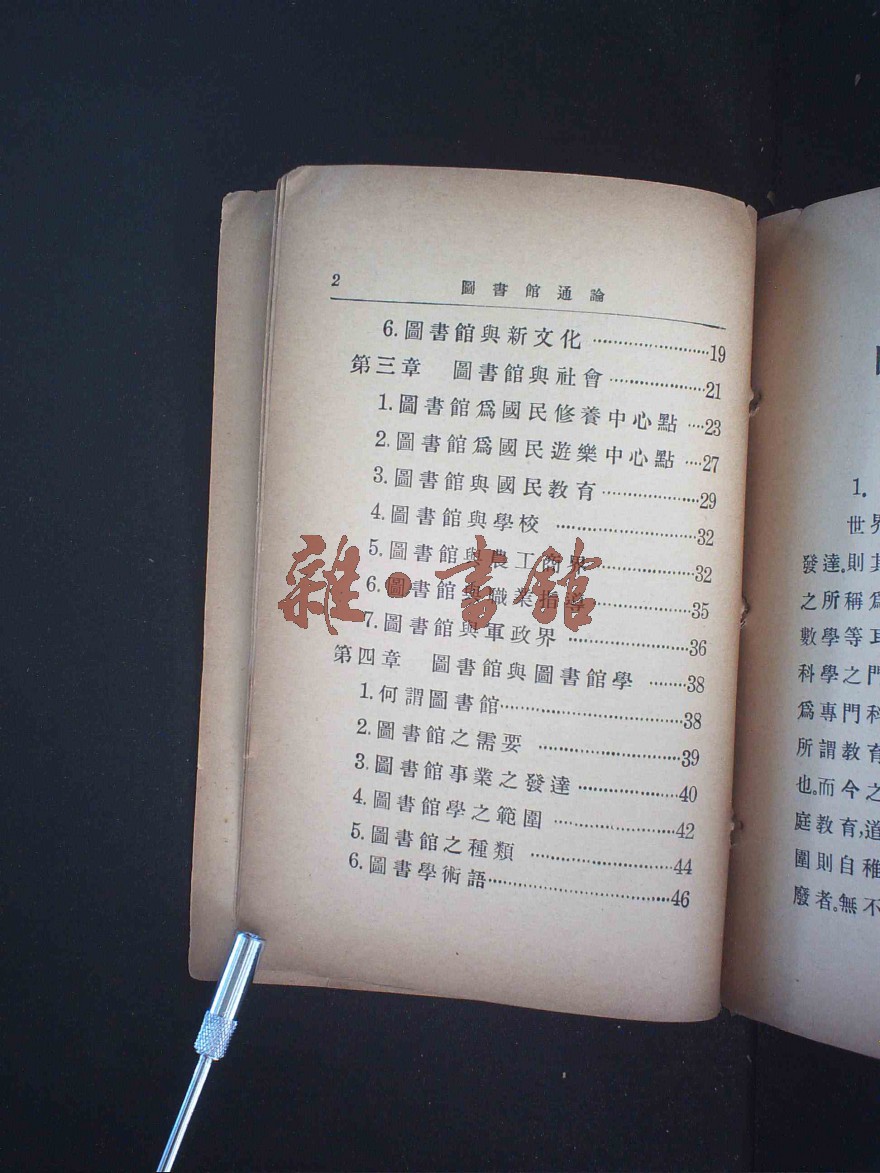 2 圖書館通論
6.圖書館與新文化……………………19
第三章 圖書館與社會…………………21
1.圖書館爲國民修養中心點…23
2.圖書館爲國民遊樂中心點…27
3.圖書館與國民教育…………………29
4.圖書館與學校………………………32
5.圖書館與農工商界…………………32
6.圖書館與職業指導…………………35
7.圖書館與軍政界……………………36
第四章 圖書館與圖書館學………38
1.何謂圖書館…………………………38
2.圖書館之需要………………………39
3.圖書館事業之發達…………………40
4.圖書館學之範圍……………………42
5.圖書館之種類………………………44
6.圖書學術語…………………………46
雜·書館
1.
世界
發達,則其
之所稱爲
數學等耳
科學之門
爲專門科
所謂教育
也。而今之
庭教育,道
圍則自稚
廢者。無不